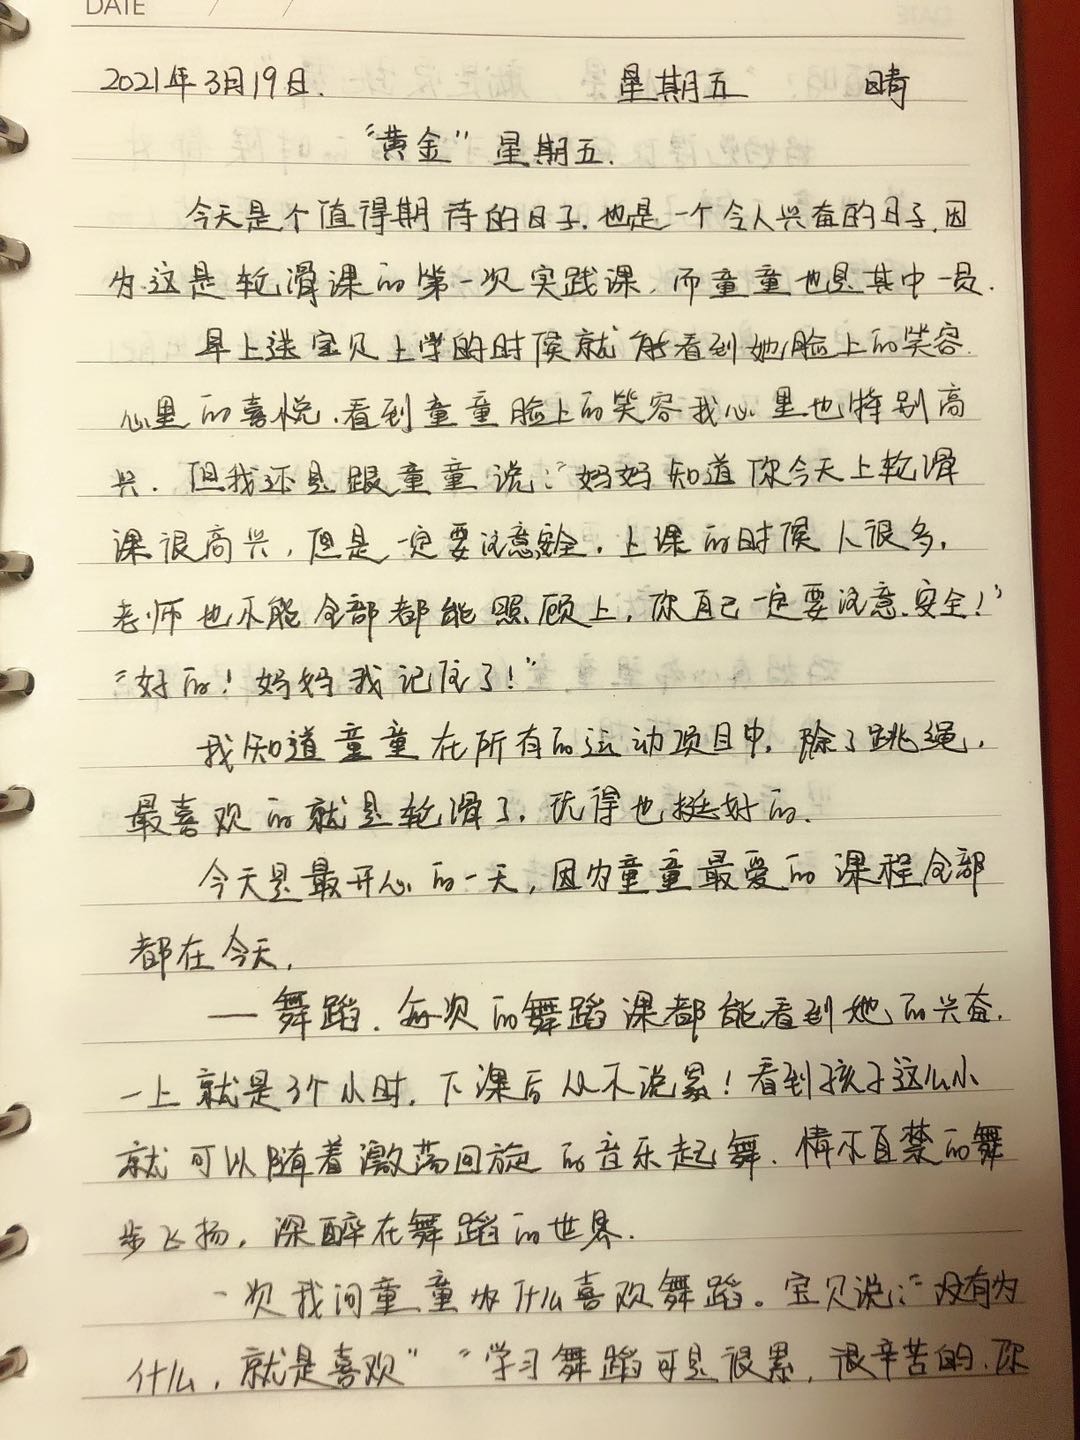 DATE / /
2021年3月19日. 星期五 晴
“黄金”星期五.
今天是个值得期待的日子.也是一个令人兴奋的日子.因
为这是轮滑课的第一次实践课.而童童也是其中一员.
早上送宝贝上学的时候就能看到她脸上的笑容.
心里的喜悦.看到童童脸上的笑容我心里也特别高
兴.但我还是跟童童说:“妈妈知道你今天上轮滑
课很高兴,但是一定要注意安全.上课的时候人很多,
老师也不能全部都能照顾上,你自己一定要注意.安全!”
“好的!妈妈我记住了!”
我知道童童在所有的运动项目中,除了跳绳,
最喜欢的就是轮滑了,玩得也挺好的.
今天是最开心的一天,因为童童最爱的课程全部
都在今天,
一舞蹈.每次的舞蹈课都能看到她的兴奋.
一上就是3个小时,下课后从不说累!看到孩子这么小
就可以随着激荡回旋的音乐起舞.情不自禁的舞
步飞扬,深醉在舞蹈的世界.
一次我问童童为什么喜欢舞蹈。宝贝说:“没有为
什么,就是喜欢”“学习舞蹈可是很累,很辛苦的.你